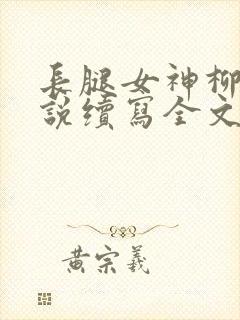 長腿女神柳
說續寫全文
黃宗羲